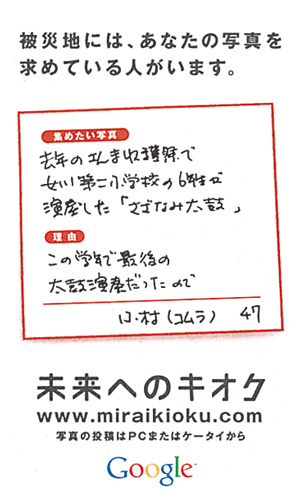 被災地には、あなたの写真を
求めている人がいます。
集めたい写真
去年のさんま収獲祭で
女川第二小学校の6年生が
演奏した「さざなみ太鼓」
理由
この学年で最後の
太鼓演奏だったので
小村(コムラ) 47
未来へのキオク
www.miraikioku.com
写真の投稿はPCまたはケータイから
Google